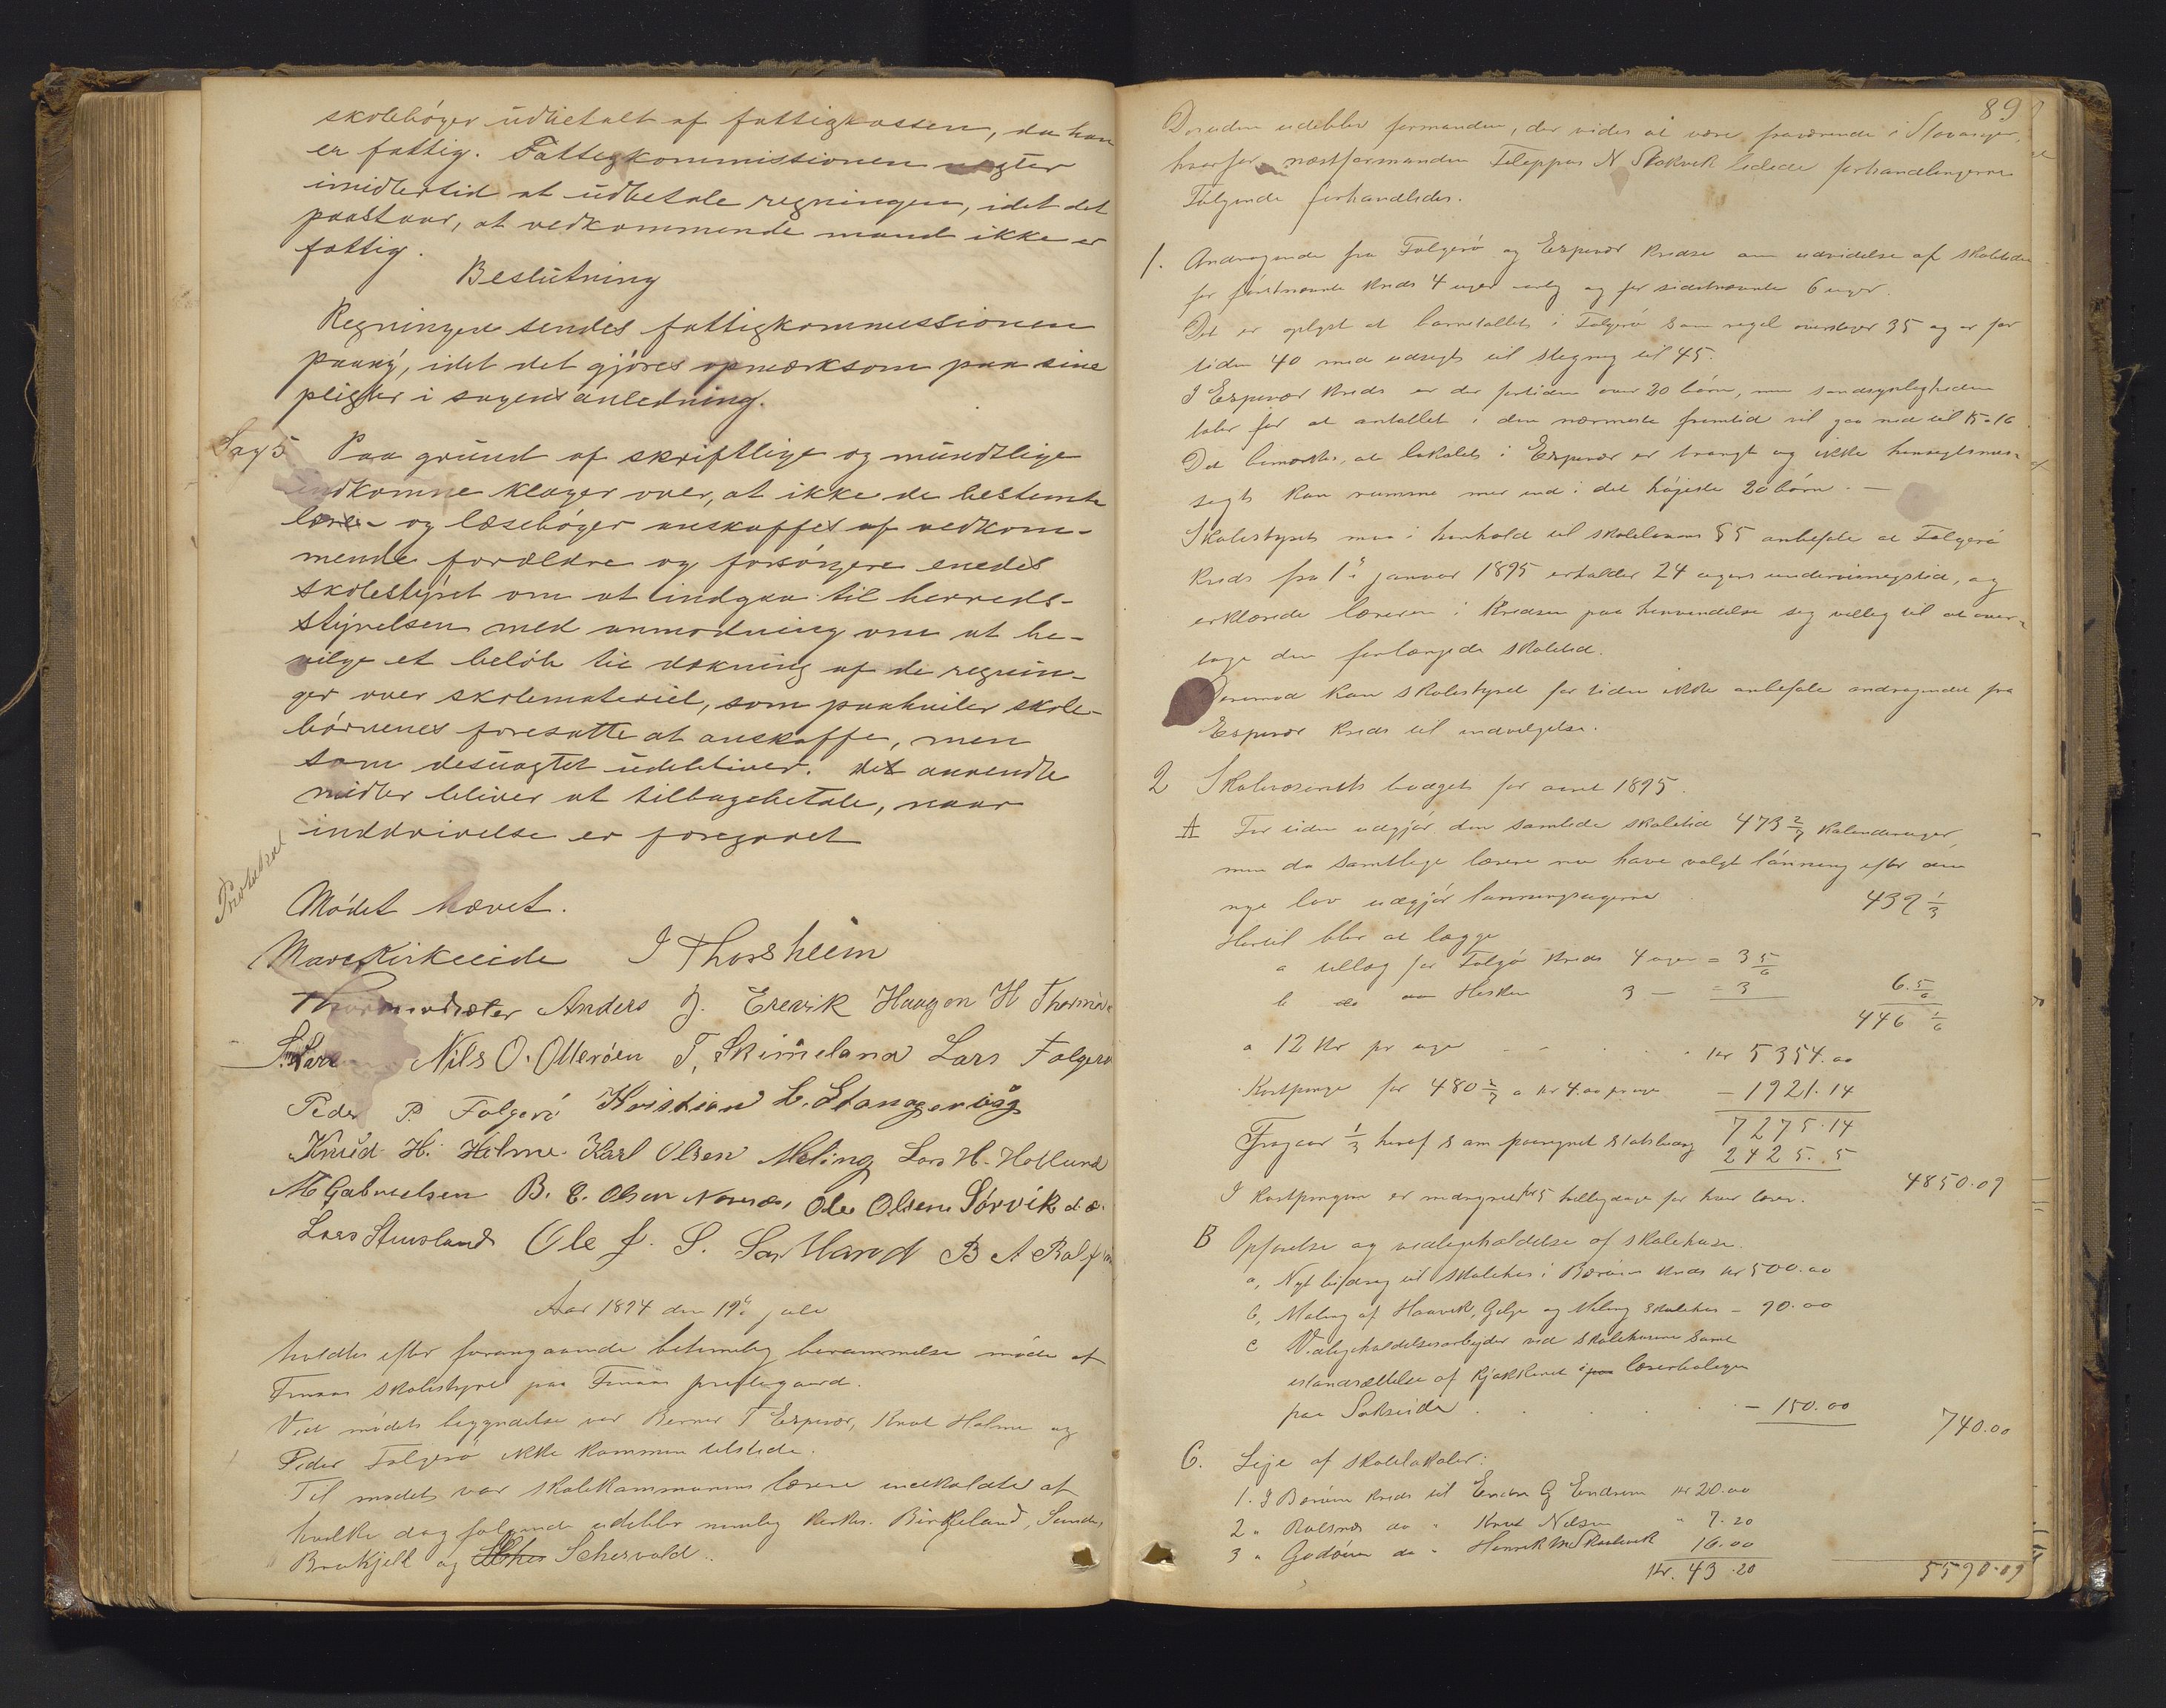 skolebøger udbetalt af fattigkassen, da han
er fattig. Fattigkommissionen nægter
imidlertid at udbetale regningen, idet det
paastaar, at vedkommende mand ikke er
fattig.
Beslutning
Regningen sendes fattigkommissionen
paany, idet det gjøres opmærksom paa sine
pligter i sagens anledning.
Sag 5 Paa grund af skriftlige og mundtlige
indkomne klager over, at ikke de bestemte
lære- og læsebøger anskaffes af vedkom-
mende forældre og forsørgere enedes
skolestyret om at indgaa til herreds-
styrelsen med anmodning om at be-
vilge et beløb til dækning af de regnin-
ger over skolemateriel, som paahviler skole-
børnenes foresatte at anskaffe, men
som desuagtet udebliver. Det anvendte
midler bliver at tilbagebetale, naar
inddrivelse er foregaaet
Mødet hævet.
Mons Kirkeide J Thorsheim
Anders J. Erevik Haagen H
Nils O. Ollerøen T. Skimeland Lars Folgerø
Peder P. Folgerø Kristian L. Stangervåg
Knud H. Holme Karl Olsen Meling Lars H. Hotlund
M Gabrielsen B. E. Olsen Ole Olsen Sørvik d.æ.
Lars Stuvsland Ole J. S. B A
Aar 1894 den 19de juli
holdtes efter forangaaende betimelig berammelse møde af
Finnaas skolestyre paa Finnaas prestegaard.
Ved mødets begyndelse var Berner T Espevær, Knut Holme og
Peder Folgerø ikke kommen tilstede.
Til mødet var skolekommunens lærere indkaldte af
hvilke dog følgende udeblev nemlig Kirke. Birkeland,
og Schervold.
89
Desuden udeblev formanden, der vides at være fraværende i Stavanger,
hvorfor næstformanden Filippus N Stokvik ledede forhandlingerne
Følgende forhandledes.
1. Andragende fra Folgerø og Espevær kredse om udvidelse af skoletiden
for førstnævnte kreds 4 uger aarlig og for sidstnævnte 6 uger.
Det er oplyst at barnetallet i Folgerø som regel overstiger 35 og er for
tiden 40 med udsigt til stigning til 45.
I Espevær kreds er der fortiden over 20 børn, men sandsynligheden
taler for at antallet i den nærmeste fremtid vil gaa ned til 15-16
Det bemærkes, at lokalet i Espevær er trangt og ikke hensigtsmæs-
sigt kan rumme mer end i det højeste 20 børn. —
Skolestyret maa i henhold til skolelovens § 5 anbefale at Folgerø
kreds fra 1ste januar 1895 erholder 24 ugers undervisningstid, og
erklærede læreren i kredsen paa henvendelse sig villig til at over-
tage den forlængede skoletid.
Derimod kan skolestyret for tiden ikke anbefale andragendet fra
Espevær kreds til indvilgelse.
2 Skolevæsenets budget for aaret 1895.
A For tiden udgjør den samlede skoletid 473 2/7 kalenderuger,
men da samtlige lærere nu have valgt lønning efter den
nye lov udgjør lønningsugerne 439 1/3
Hertil blir at lægge
a tillæg for Folgerø kreds 4 uger = 3 5/6
b do Hisken 3 — = 3 6. 5/6
446 1/6
a 12 kr pr uge kr 5354.00
Kostpenge for 480 2/7 a kr 4.00 pr uge — 1921.14
7275.14
Fragaar 1/3 heraf som paaregnet statsbidrag 2425.5
4850.09
I kostpengene er medregnet for 5 helligdage for hver lærer.
B Opførelse og vedligeholdelse af skolehuse.
a, Nyt bidrag til skolehus i Børøen kreds kr 500.00
b, Maling af Haavik, Gilje og Meling skolehus — 90.00
c Vedligeholdelsesarbejder ved skolehusene samt
istandsættelse af kjøkkenet i lærerboligen
paa Sakseide — 150.00
740.00
C. Leje af skolelokaler:
1. I Børøen kreds til Endre G Endresen kr 20.00
2 " Rolsnes do " Knut Nilsen " 7.20
3 " Godøen do " Henrik 16.00
Kr. 43.20
5590.09